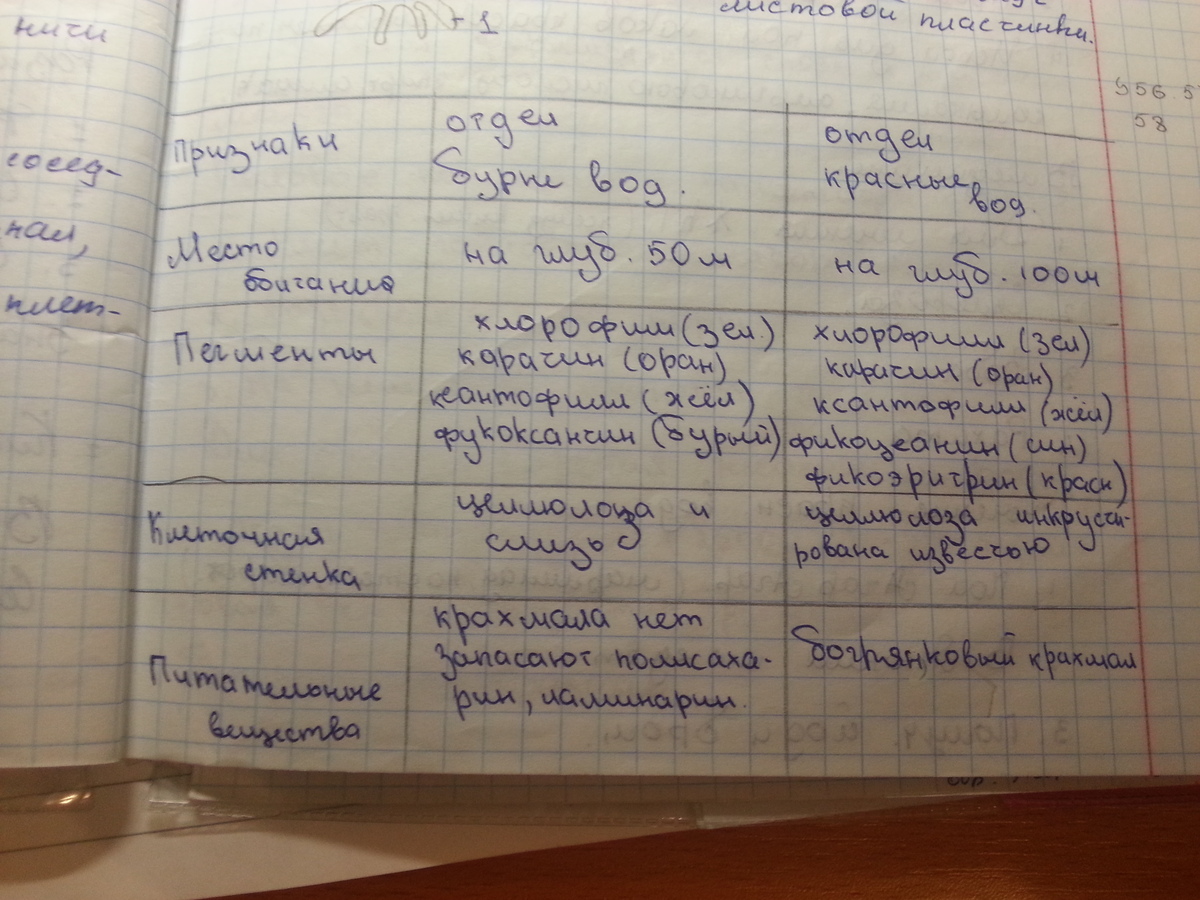 ничи
сосед-
нал,
плет-
+ 1
листовой пластинки.
§56.5
58
Признаки
отдел
бурые вод.
отдел
красные
вод.
Место
обитания
на глуб. 50м
на глуб. 100м
Пегменты
хлорофилл (зел.)
каратин (оран)
ксантофилл (жёл)
фукоксантин (бурый)
хлорофилл (зел)
каратин (оран)
ксантофилл (жёл)
фикоцеанин (син)
фикоэритрин (красн)
Клеточная
стенка
целлюлоза и
слизь
целлюлоза инкрусти-
рована известью
Питательные
вещества
крахмала нет
запасают полисаха-
рин, ламинарин.
богрянковый крахмал